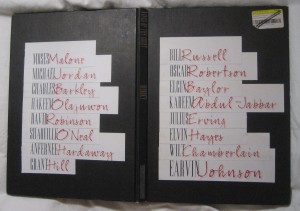 MOSES Malone
MICHAEL Jordan
CHARLES Barkley
HAKEEM Olajuwon
DAVID Robinson
SHAQUILLE O'Neal
ANFERNEE Hardaway
GRANT Hill
BILL Russell
OSCAR Robertson
ELGIN Baylor
KAREEM Abdul-Jabbar
JULIUS Erving
ELVIN Hayes
WILT Chamberlain
EARVIN Johnson